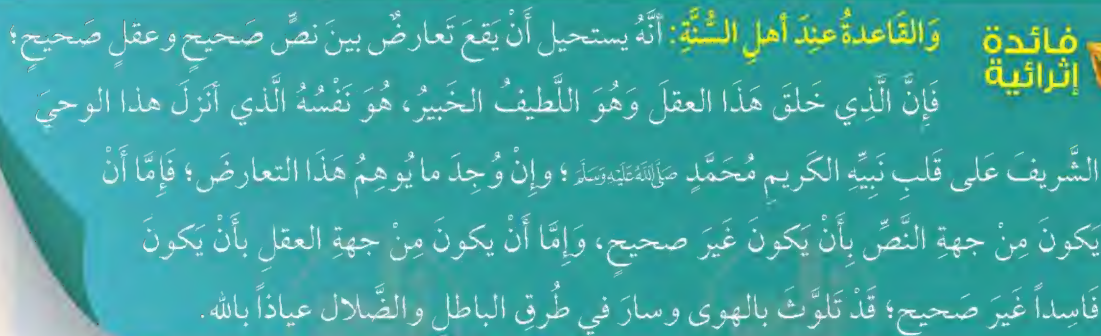 فائدة إثرائية
وَالقَاعدةُ عندَ أهلِ السُّنَّةِ: أنَّهُ يستحيل أَنْ يَقعَ تَعارضٌ بينَ نصٍّ صَحيحٍ وعقلٍ صَحيحٍ؛
فَإِنَّ الَّذِي خلقَ هَذَا العقلَ وَهُوَ اللَّطيفُ الخَبيرُ، هُوَ نَفْسُهُ الَّذي أنزلَ هذا الوحيَ
الشَّريفَ عَلى قَلبِ نَبيِّهِ الكَريمِ مُحَمَّدٍ صَلَّىٰاللَّهُعَلَيْهِوَسَلَّمَ؛ وإِنْ وُجِدَ ما يُوهِمُ هَذَا التعارضَ؛ فَإِمَّا أَنْ
يكونَ مِنْ جهةِ النَّصِّ بِأَنْ يَكونَ غَيرَ صحيحٍ، وَإِمَّا أَنْ يكونَ مِنْ جهةِ العقلِ بأَنْ يَكونَ
فَاسداً غَيرَ صَحيحٍ؛ قَدْ تَلوَّثَ بالهوى وسارَ في طُرقِ الباطلِ والضَّلال عياذاً بالله.